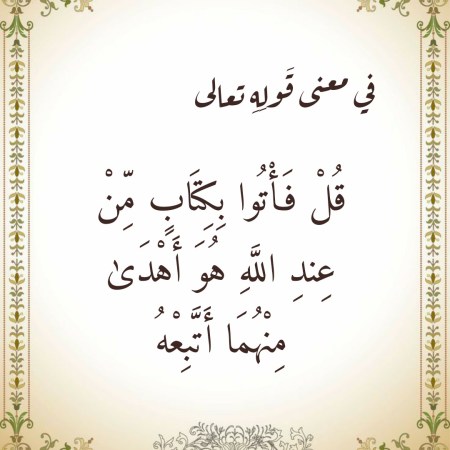 في معنى قَولِه تعالى
قُلْ فَأْتُوا بِكِتَابٍ مِّنْ
عِندِ اللَّهِ هُوَ أَهْدَىٰ
مِنْهُمَا أَتَّبِعْهُ